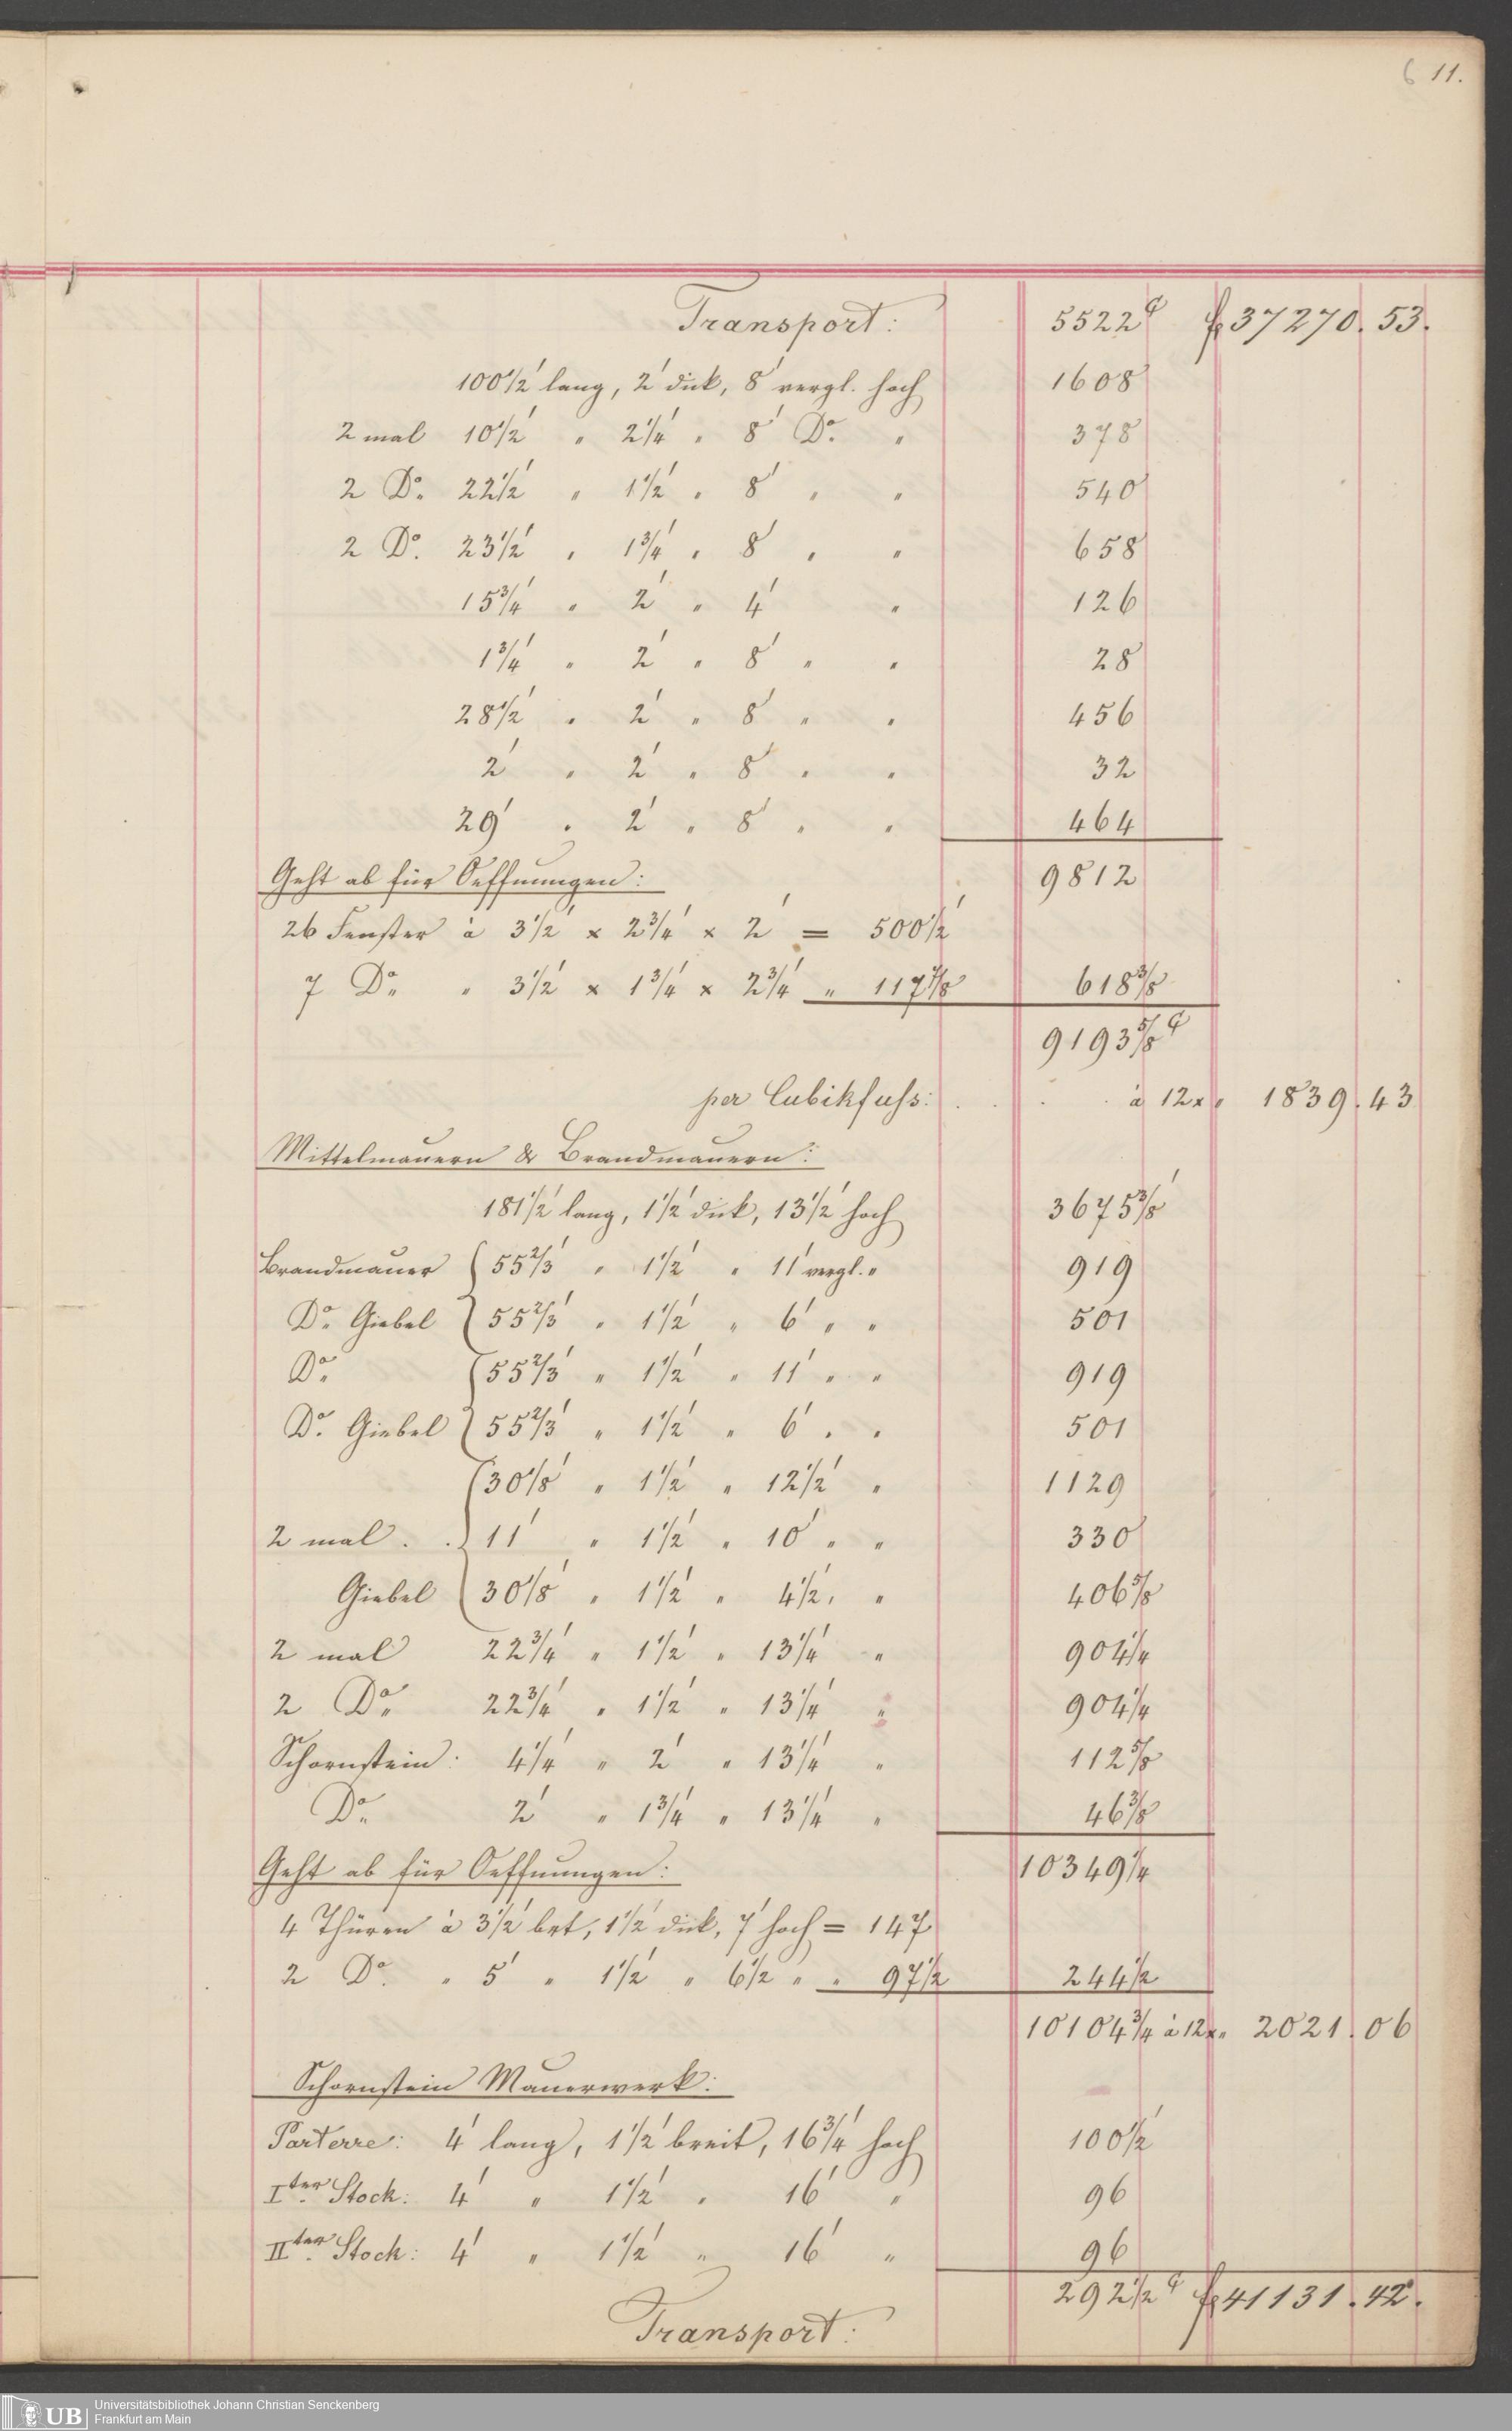 6 11.
Transport: 5522 fl 37270. 53.
100 1/2' lang, 2' dick, 8' vergl. hoch 1608
2 mal 10 1/2' " 2 1/4' " 8' Do. " 378
2 Do. 22 1/2' " 1 1/2' " 8' " " 540
2 Do. 23 1/2' " 1 3/4' " 8' " " 658
15 3/4' " 2' " 4' " 126
1 3/4' " 2' " 8' " " 28
28 1/2' " 2' " 8' " " 456
2' " 2' " 8' " " 32
29' " 2' " 8' " " 464
Geht ab für Oeffnungen: 9812
26 Fenster à 3 1/2' x 2 3/4' x 2' = 500 1/2'
7 Do. " 3 1/2' x 1 3/4' x 2 3/4' " 117 7/8 618 3/8
9193 5/8
per Cubikfuss: . . . . à 12x " 1839. 43
Mittelmauern & Brandmauern:
181 1/2' lang, 1 1/2' dick, 13 1/2' hoch 3675 3/8'
Brandmauer { 55 2/3' " 1 1/2' " 11' vergl. " 919
Do. Giebel } 55 2/3' " 1 1/2' " 6' " " 501
Do. { 55 2/3' " 1 1/2' " 11' " " 919
Do. Giebel } 55 2/3' " 1 1/2' " 6' " " 501
{ 30 1/8' " 1 1/2' " 12 1/2' " 1129
2 mal . . } 11' " 1 1/2' " 10' " " 330
Giebel { 30 1/8' " 1 1/2' " 4 1/2' " " 406 5/8
2 mal 22 3/4' " 1 1/2' " 13 1/4' " 904 1/4
2 Do. 22 3/4' " 1 1/2' " 13 1/4' " 904 1/4
Schornstein: 4 1/4' " 2' " 13 1/4' " 112 5/8
Do. 2' " 1 3/4' " 13 1/4' " 46 3/8
Geht ab für Oeffnungen: 10349 1/4
4 Thüren à 3 1/2' brt, 1 1/2' dick, 7' hoch = 147
2 Do. " 5' " 1 1/2' " 6 1/2' " " 97 1/2 244 1/2
10104 3/4 à 12x " 2021. 06
Schornstein Mauerwerk:
Parterre: 4' lang, 1 1/2' breit, 16 3/4' hoch 100 1/2'
Iter Stock: 4' " 1 1/2' " 16' " 96
IIter Stock: 4' " 1 1/2' " 16' " 96
292 1/2 fl 41131. 42.
Transport:
UB Universitätsbibliothek Johann Christian Senckenberg
Frankfurt am Main